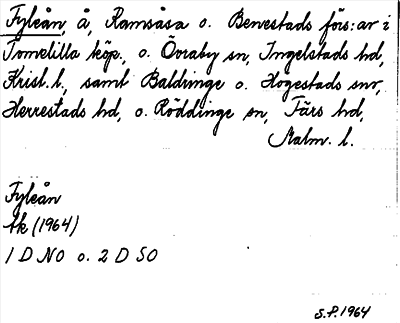 Fyleån, å, Ramsåsa o. Benestads förs:ar i
Tomelilla köp., o. Övraby sn, Ingelstads hd,
Krist. l., samt Baldringe o. Högestads snr,
Herrestads hd, o. Röddinge sn, Färs hd,
Malm. l.
Fyleån
Ak (1964)
1 D NO o. 2 D SO
S.P. 1964